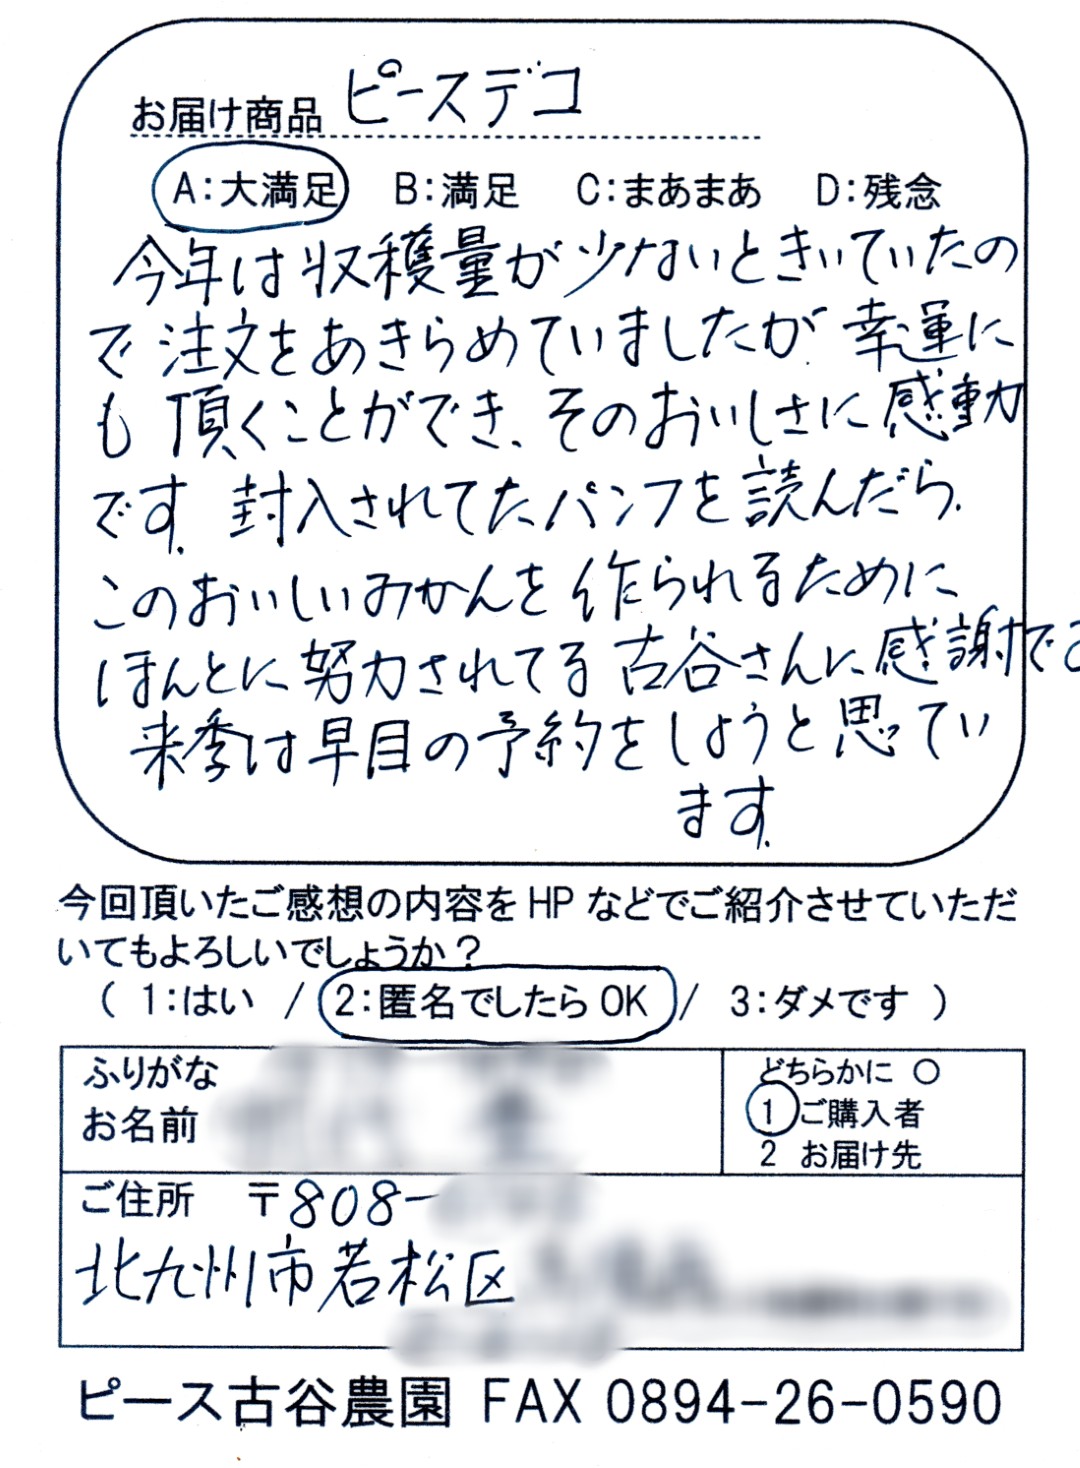 お届け商品 ピースデコ
A：大満足 B：満足 C：まあまあ D：残念
今年は収穫量が少ないときいていたの
で注文をあきらめていましたが 幸運に
も 頂くことができ、そのおいしさに感動
です。封入されてたパンフを読んだら、
このおいしいみかんを作られるために
ほんとに努力されてる古谷さんに感謝です
来季は早目の予約をしようと思ってい
ます。
今回頂いたご感想の内容をHPなどでご紹介させていただ
いてもよろしいでしょうか？
（ 1：はい / 2：匿名でしたらOK / 3：ダメです ）
ふりがな
お名前
どちらかに ○
1 ご購入者
2 お届け先
ご住所 〒808-
北九州市若松区
ピース古谷農園 FAX 0894-26-0590